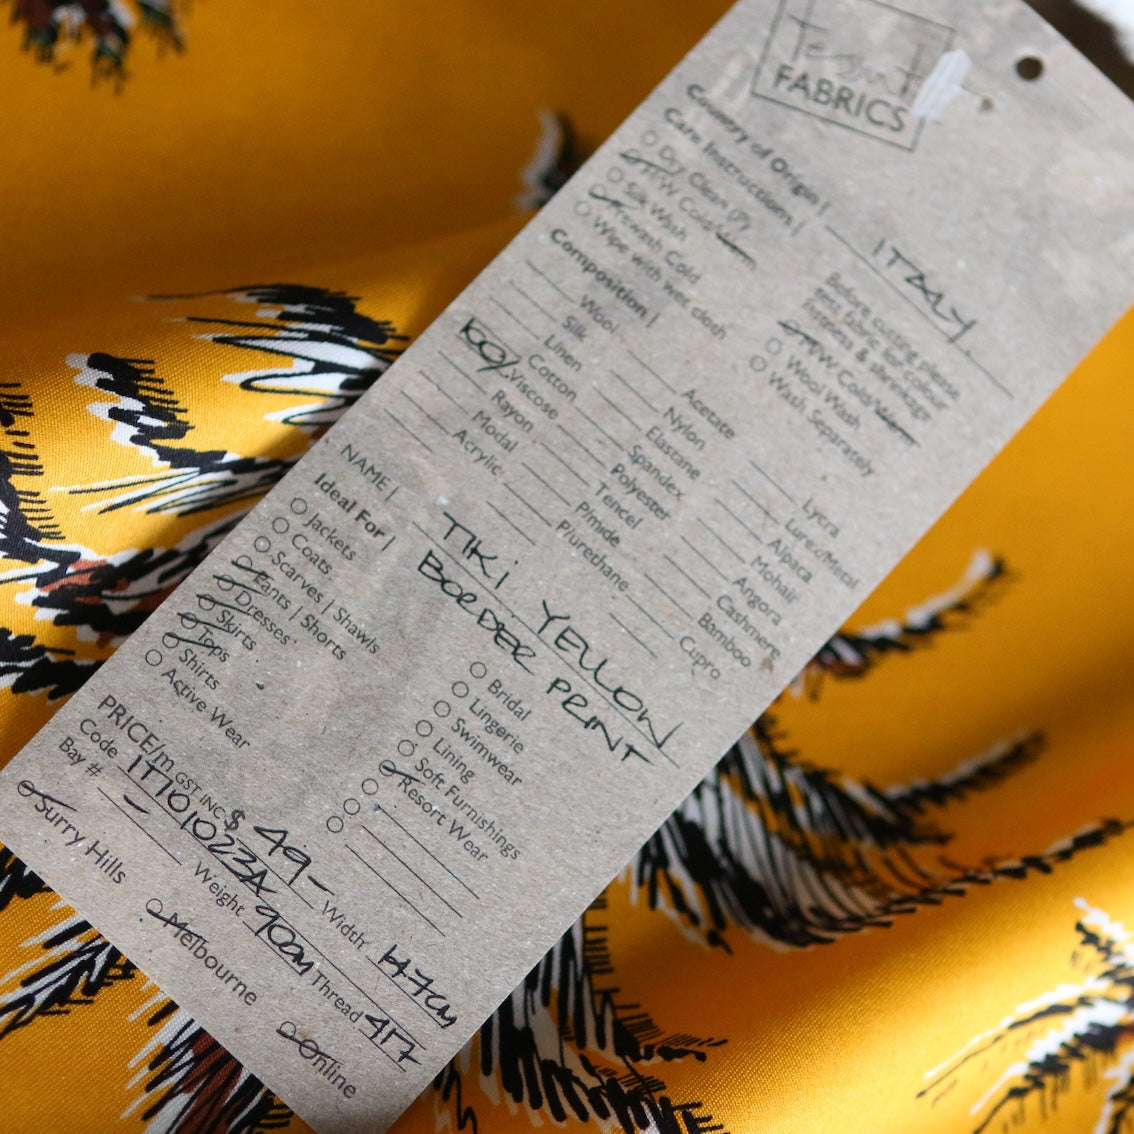 FABRICS
Country of Origin | ITALY.
Care Instructions |
Dry Clean (P)
H/W Cold/Warm
Silk Wash
Prewash Cold
Wipe with wet cloth
Before cutting please
test fabric for colour
fastness & shrinkage
M/W Cold/Warm
Wool Wash
Wash Separately
Composition |
Wool
Silk
Linen
Cotton
100% Viscose
Rayon
Modal
Acrylic
Acetate
Nylon
Elastane
Spandex
Polyester
Tencel
P/mide
P/urethane
Lycra
Lurex/Metal
Alpaca
Mohair
Angora
Cashmere
Bamboo
Cupro
NAME | TIKI YELLOW
BORDER PRINT
Ideal For |
Jackets
Coats
Scarves | Shawls
Pants | Shorts
Dresses
Skirts
Tops
Shirts
Active Wear
Bridal
Lingerie
Swimwear
Lining
Soft Furnishings
Resort Wear
PRICE/m GST INC $ 49- Width 147cm
Code IT101023A Weight 90GM Thread 417
Bay # -
Surry Hills
Melbourne
Online